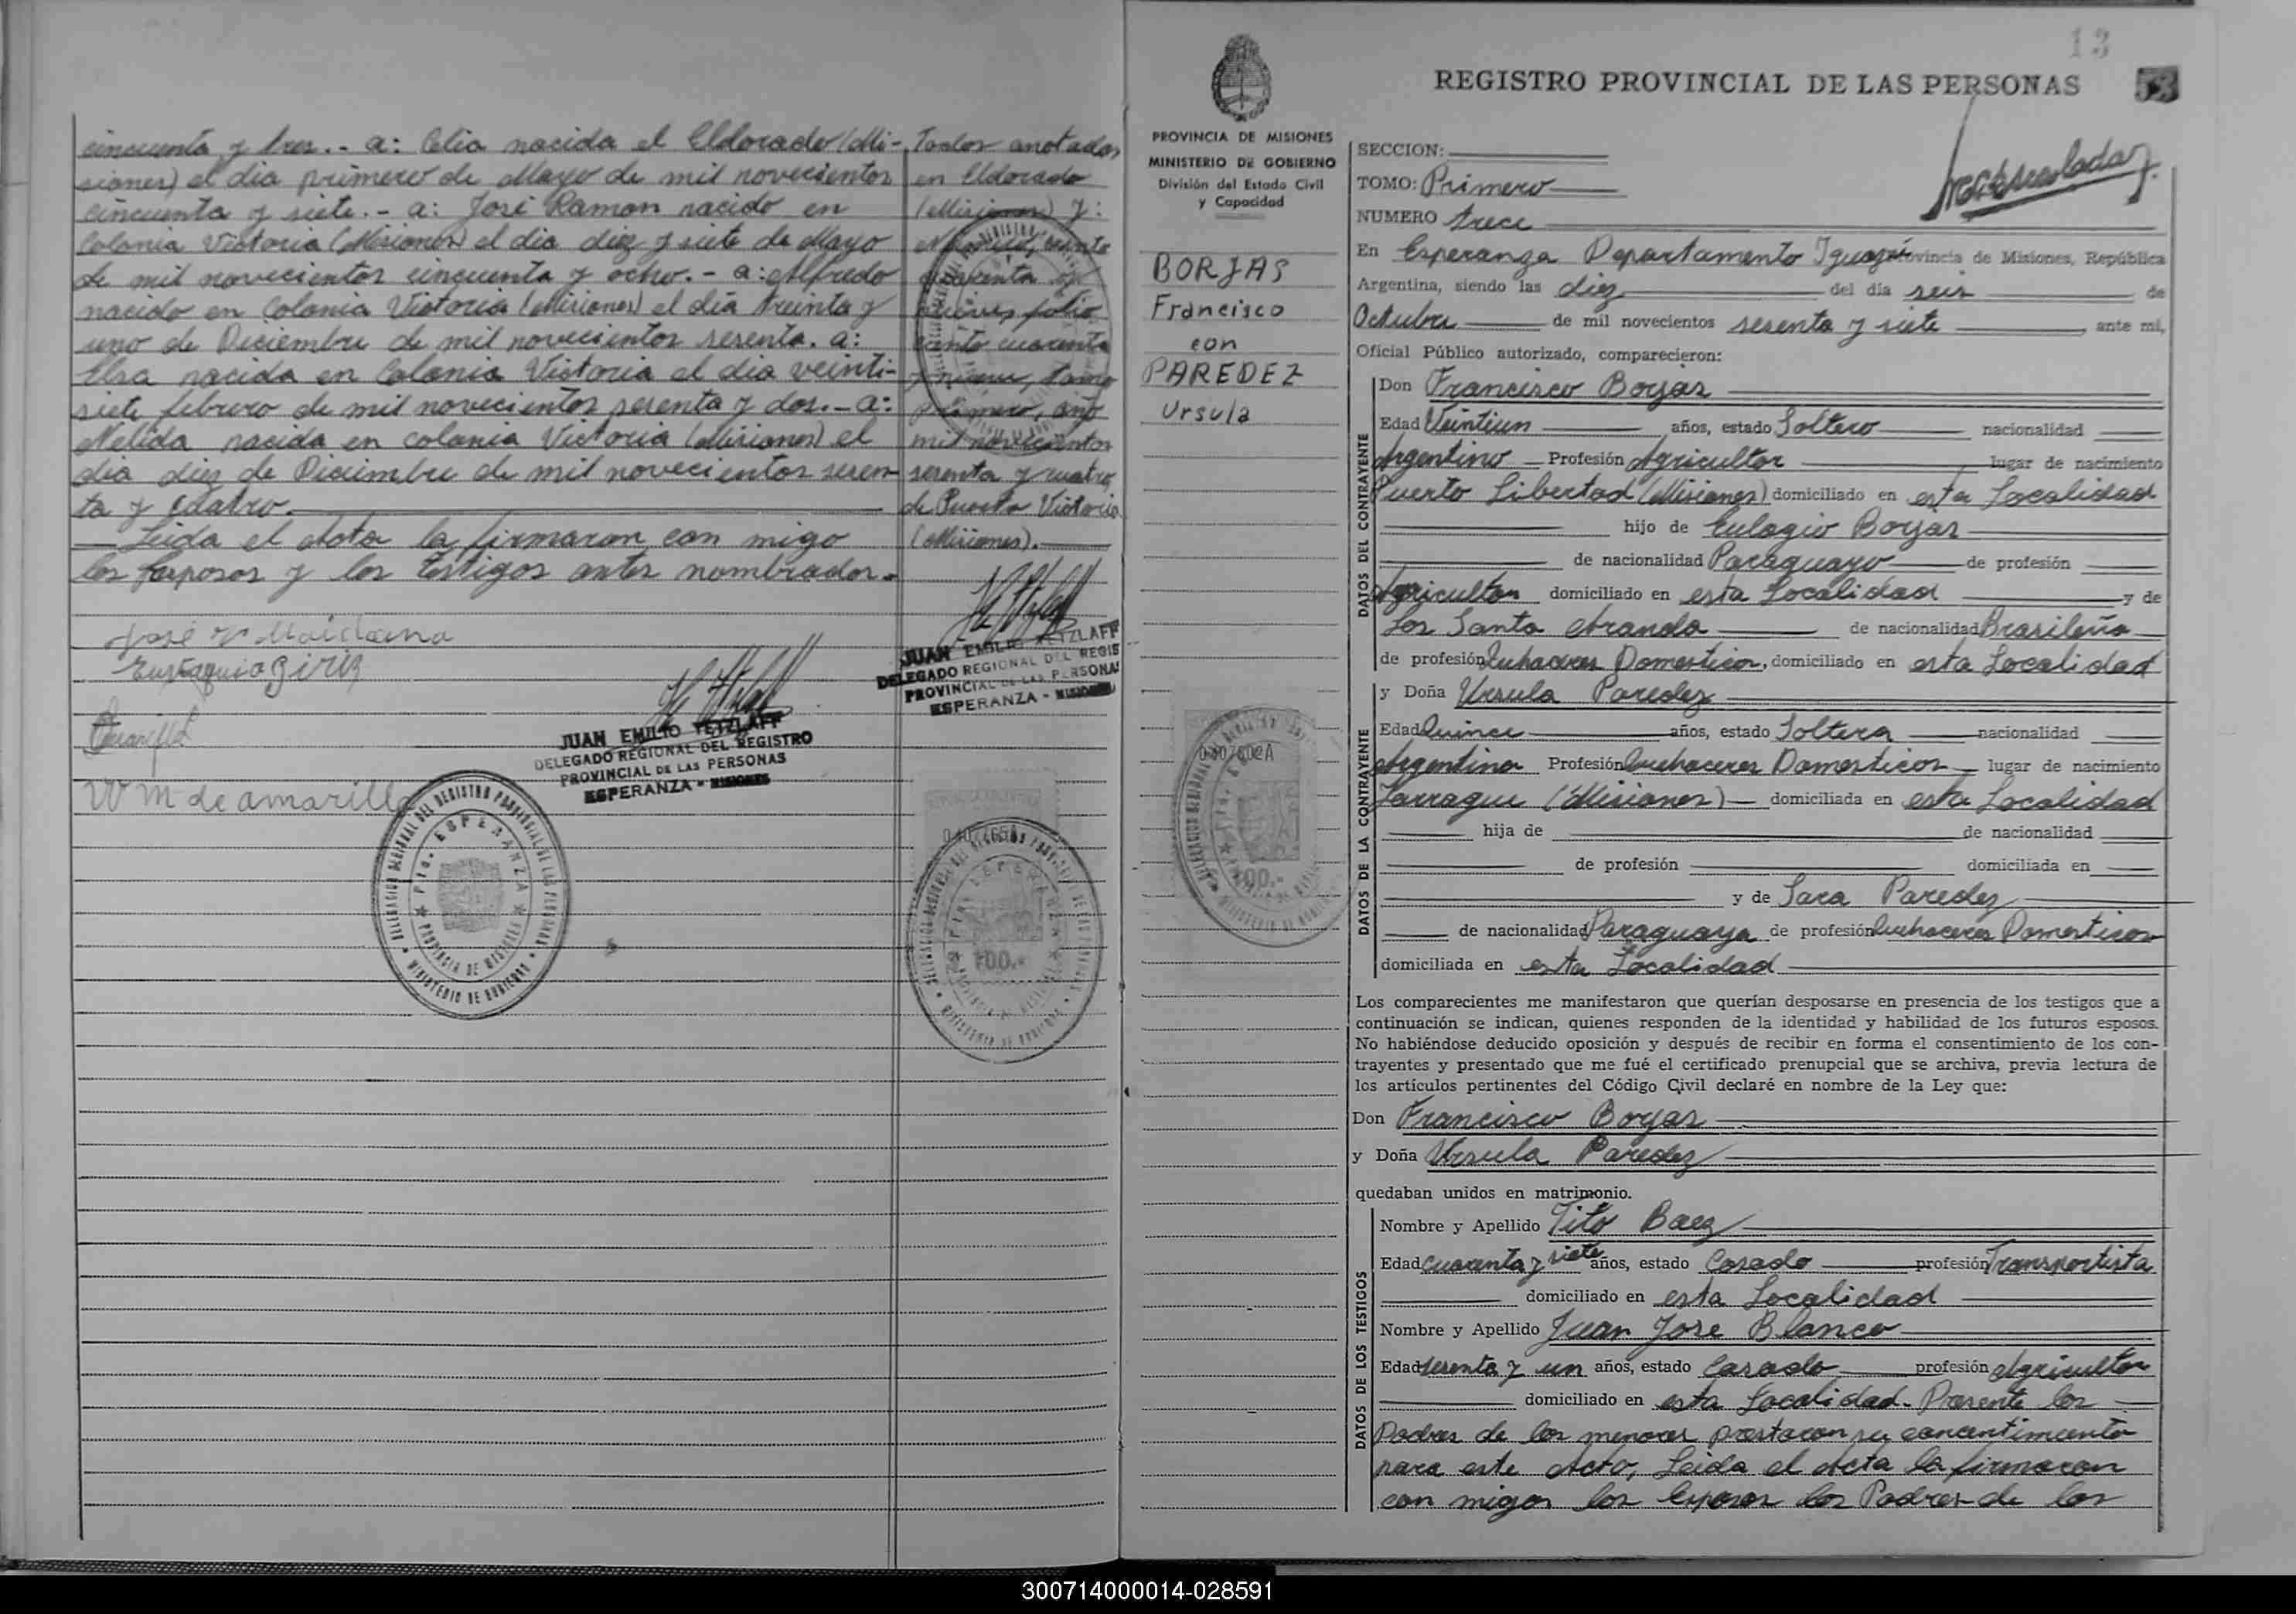 cincuenta y tres.- a: Celia nacida el Eldorado (Mi-
siones) el dia primero de Mayo de mil novecientos
cincuenta y siete.- a: José Ramon nacido en
Colonia Victoria (Misiones) el dia diez y siete de Mayo
de mil novecientos cincuenta y ocho.- a: Alfredo
nacido en Colonia Victoria (Misiones) el día treinta y
uno de Diciembre de mil novecientos sesenta. a:
Elsa nacida en Colonia Victoria el dia veinti-
siete febrero de mil novecientos sesenta y dos.- a:
Nelida nacida en colonia Victoria (Misiones) el
dia diez de Diciembre de mil novecientos sesen-
ta y cuatro.
Leida el Acta la firmaron con migo
los esposos y los testigos antes nombrados.
Todos anotados
en Eldorado
(Misiones) y:
cuarenta y
nueve, folio
ciento cuarenta
y nueve, tomo
primero, año
mil novecientos
sesenta y cuatro,
de Puerto Victoria
(Misiones).
JUAN EMILIO TETZLAFF
DELEGADO REGIONAL DEL REGIS
PROVINCIAL DE LAS PERSONA
ESPERANZA - MISIONES
José Maidana
Eustaquio
W M de amarilla
JUAN EMILIO TETZLAFF
DELEGADO REGIONAL DEL REGISTRO
PROVINCIAL DE LAS PERSONAS
ESPERANZA - MISIONES
DELEGACION REGIONAL DEL REGISTRO PROVINCIAL DE LAS PERSONAS
Pto. ESPERANZA
PROVINCIA DE MISIONES
MINISTERIO DE GOBIERNO
100.-
13
REGISTRO PROVINCIAL DE LAS PERSONAS
53
PROVINCIA DE MISIONES
MINISTERIO DE GOBIERNO
División del Estado Civil
y Capacidad
BORJAS
Francisco
con
PAREDEZ
Ursula
0407602A
100.-
SECCION:
TOMO: Primero
NUMERO trece
En Esperanza Departamento Iguazú Provincia de Misiones, República
Argentina, siendo las diez del día seis de
Octubre de mil novecientos sesenta y siete, ante mi,
Oficial Público autorizado, comparecieron:
DATOS DEL CONTRAYENTE
Don Francisco Borjas
Edad Veintiun años, estado Soltero nacionalidad
Argentino Profesión Agricultor lugar de nacimiento
Puerto Libertad (Misiones) domiciliado en esta Localidad
hijo de Eulogio Borjas
de nacionalidad Paraguayo de profesión
Agricultor domiciliado en esta Localidad y de
Los Santa Aranda de nacionalidad Brasileña
de profesión Quehaceres Domesticos, domiciliado en esta Localidad
DATOS DE LA CONTRAYENTE
y Doña Ursula Paredez
Edad Quince años, estado Soltera nacionalidad
Argentina Profesión Quehaceres Domesticos lugar de nacimiento
(Misiones) domiciliada en esta Localidad
hija de de nacionalidad
de profesión domiciliada en
y de Sara Paredez
de nacionalidad Paraguaya de profesión Quehaceres Domesticos
domiciliada en esta Localidad
Los comparecientes me manifestaron que querían desposarse en presencia de los testigos que a
continuación se indican, quienes responden de la identidad y habilidad de los futuros esposos.
No habiéndose deducido oposición y después de recibir en forma el consentimiento de los con-
trayentes y presentado que me fué el certificado prenupcial que se archiva, previa lectura de
los artículos pertinentes del Código Civil declaré en nombre de la Ley que:
Don Francisco Borjas
y Doña Ursula Paredez
quedaban unidos en matrimonio.
DATOS DE LOS TESTIGOS
Nombre y Apellido Tito Baez
Edad cuarenta y siete años, estado Casado profesión Transportista
domiciliado en esta Localidad
Nombre y Apellido Juan Jose Blanco
Edad sesenta y un años, estado Casado profesión Agricultor
domiciliado en esta Localidad. Presente los
Padres de los menores prestaron su concentimiento
para este Acto, Leida el Acta la firmaron
con migos los Esposos los Padres de los
300714000014-028591